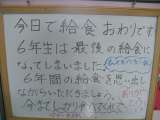 今日で給食おわりです
6年生は最後の給食に
なってしまいました
6年間の給食を思い出し
ながらいただきましょう。
今までしっかり食べてくれて